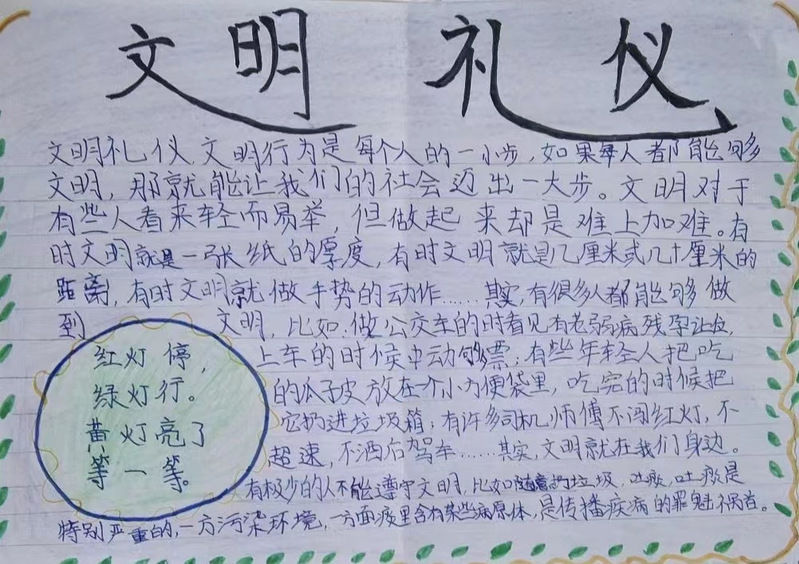 文明礼仪
文明礼仪,文明行为是每个人的一小步,如果每人都能够
文明,那就能让我们的社会迈出一大步。文明对于
有些人看来轻而易举,但做起来却是难上加难。有
时文明就是一张纸的厚度,有时文明就是几厘米或几十厘米的
距离,有时文明就做手势的动作……其实,有很多人都能够做
到文明,比如:做公交车的时看见有老弱病残孕让位,
上车的时候主动够票;有些年轻人把吃
的瓜子皮放在个小方便袋里,吃完的时候把
它扔进垃圾箱;有许多司机师傅不闯红灯,不
超速,不酒后驾车……其实,文明就在我们身边。
有极少的人不能遵守文明,比如随着扔垃圾,吐痰,吐痰是
特别严重的,一方污染环境,一方面痰里含有某些病原体,是传播疾病的罪魁祸首。
红灯停,
绿灯行。
黄灯亮了
等一等。